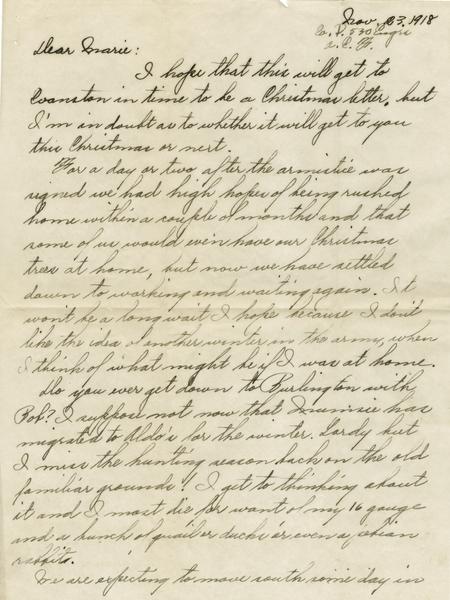 Nov. 23, 1918
Co. F. 530 Engrs
A. E. F.
Dear Marie:
I hope that this will get to
Evanston in time to be a Christmas letter, but
I'm in doubt as to whether it will get to you
this Christmas or next.
For a day or two after the armistice was
signed we had high hopes of being rushed
home within a couple of months and that
some of us would even have our Christmas
trees at home, but now we have settled
down to working and waiting again. It
won't be a long wait I hope because I don't
like the idea of another winter in the army, when
I think of what might be if I was at home.
Do you ever get down to Burlington with
Bob? I suppose not now that Mumsie has
migrated to Aldo's for the winter. Lordy but
I miss the hunting season back on the old
familiar grounds! I get to thinking about
it and I most die for want of my 16 gauge
and a bunch of quail or ducks or even a
rabbits.
We are expecting to move south some day in